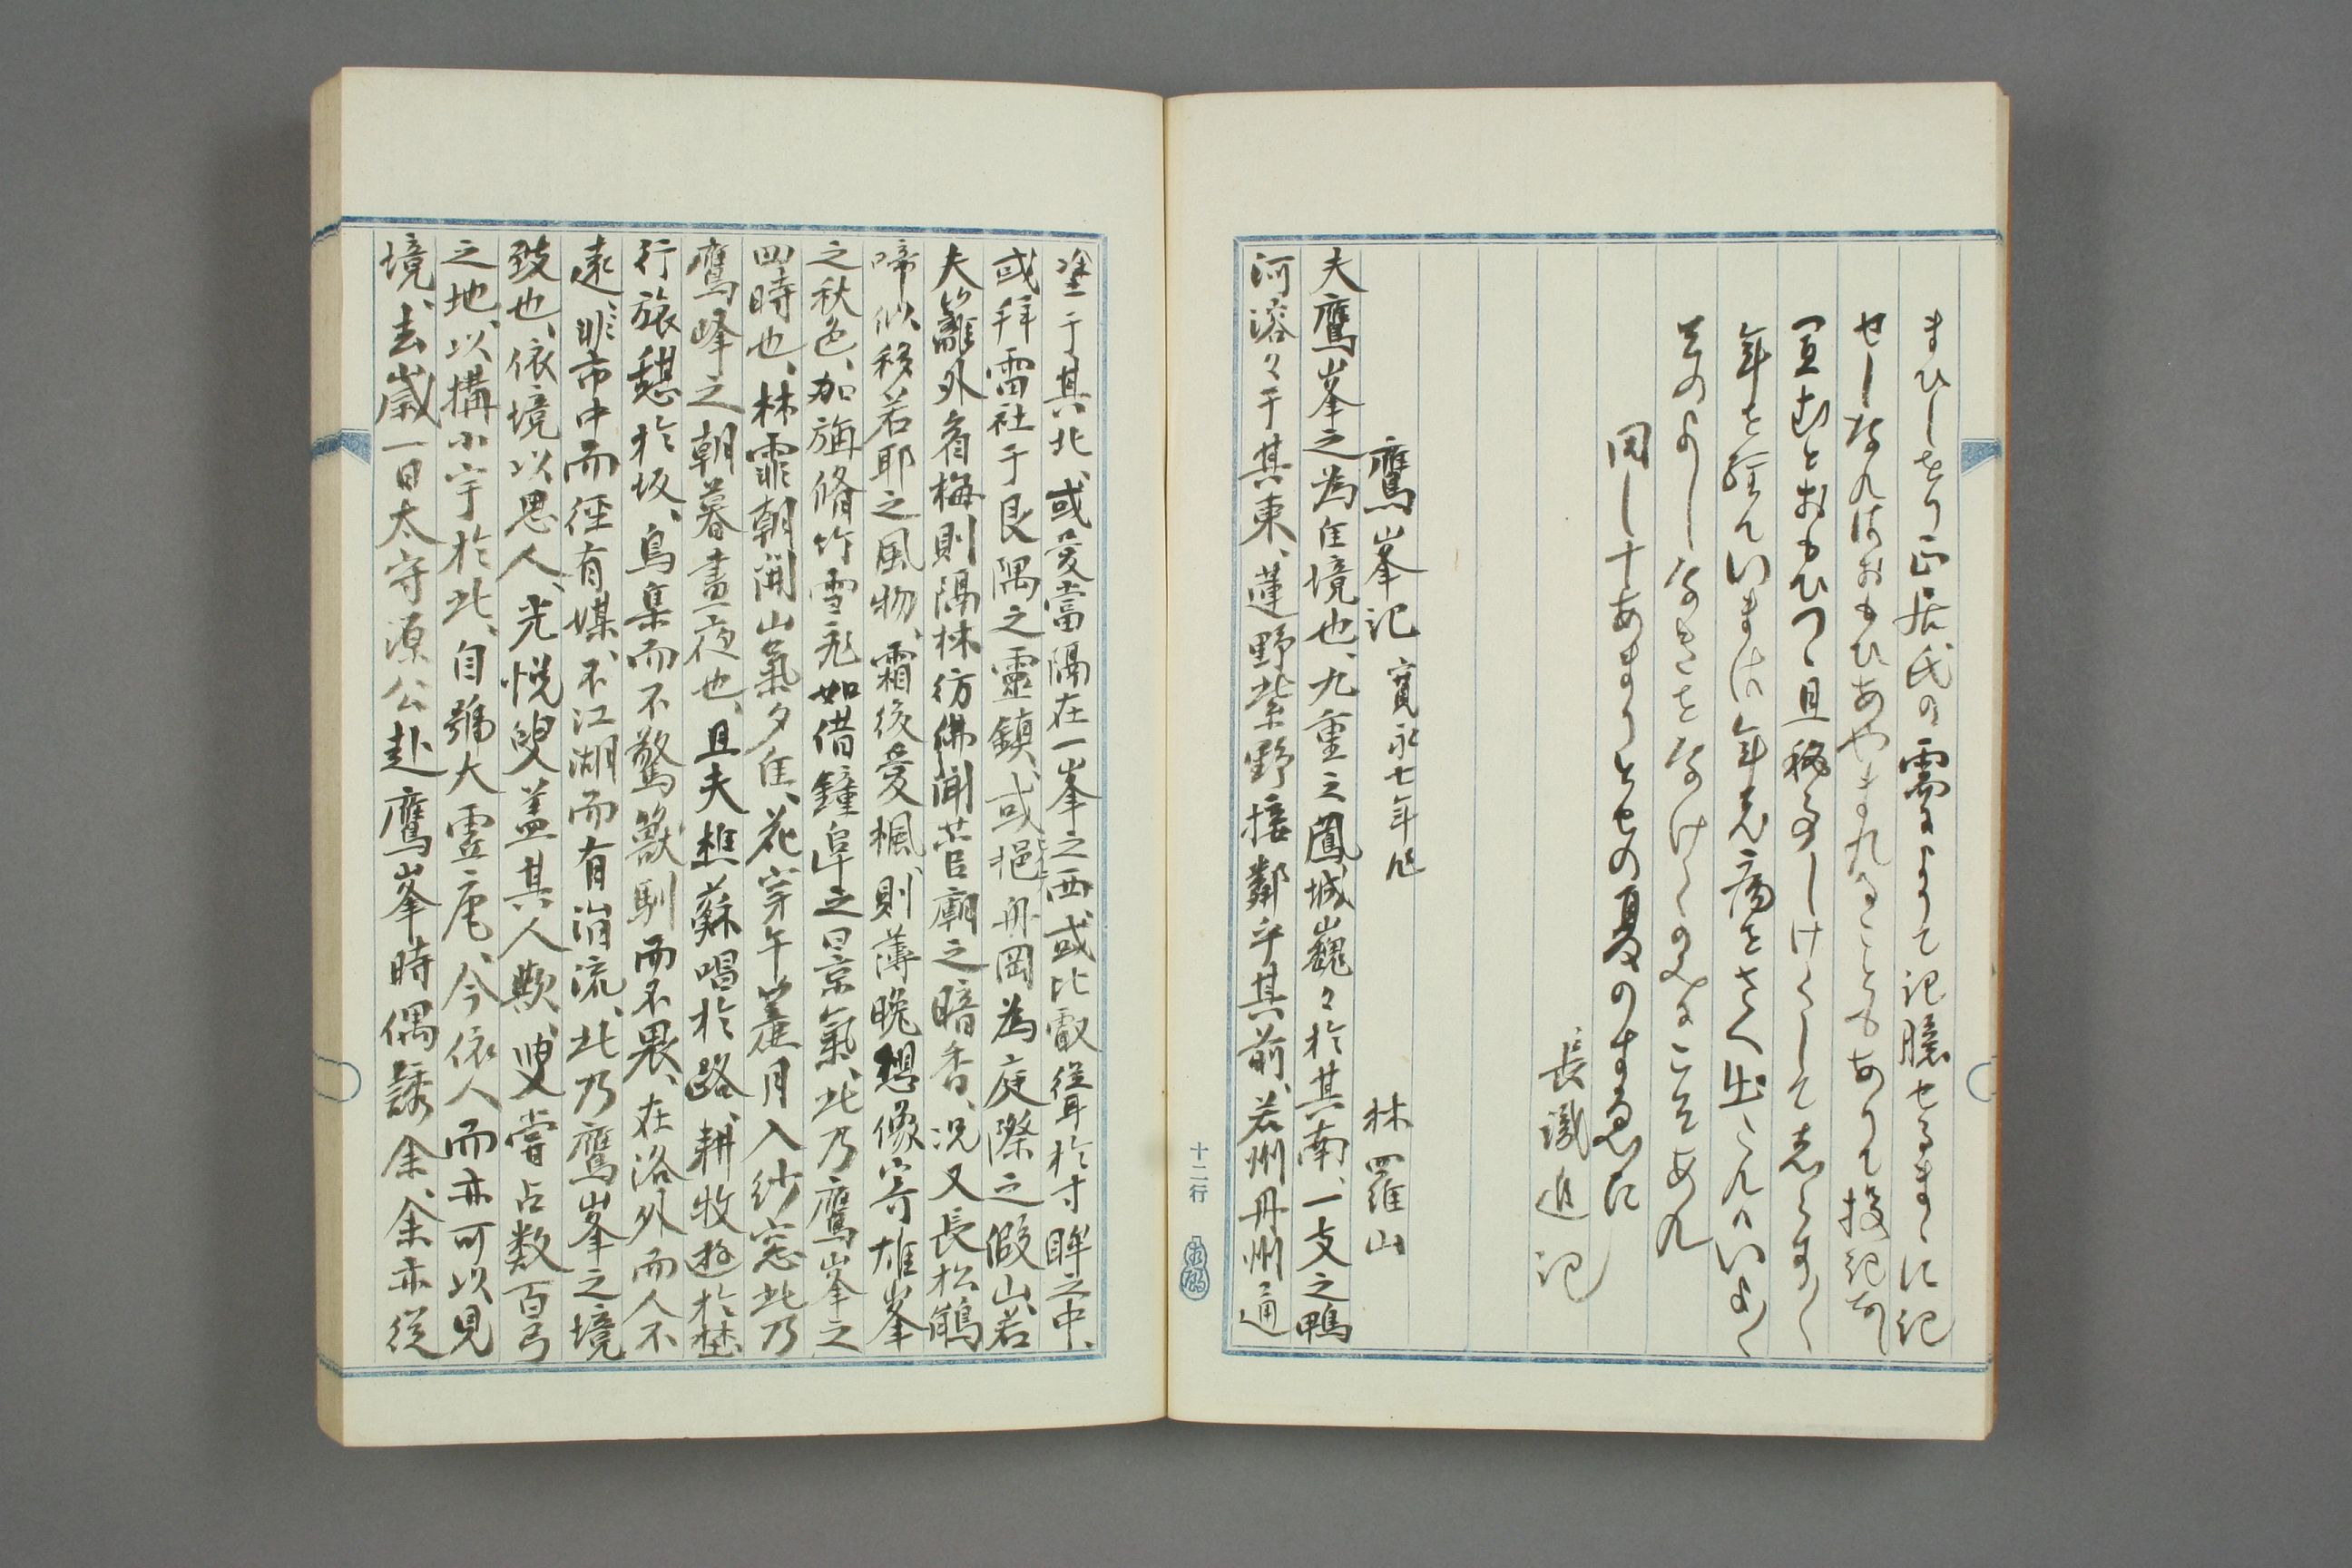 まひしをり正居氏の需によりて記臆せるまゝに記
せしなれはおもひあやまれることもありて後記あ
年を経ていまは年老病をさへ出これハいよゝ
そのよしなきをなけくのみにこそあれ
同し十あまりとせの夏のすゑに
長識追記
鷹峯記 寛永七年作 林羅山
夫鷹峯之為佳境也、九重之鳳城巍々於其南、一支之鴨
河溶々于其東、蓮野紫野接鄰乎其前、若州丹州通
塗于其北、或愛當隔在一峯之西、或比叡聳於寸眸之中、
或拜雷社于艮隅之靈鎮、或挹舟岡為庭際之假山、若
夫籬外看梅、則隔林彷彿聞菅廟之暗香、況又長松鵑
啼似移若耶之風物、霜後愛楓、則薄晩想像寄雄峯
之秋色、加旃脩竹雪飛如借鐘阜之景氣、此乃鷹峯之
四時也、林霏朝開山氣夕佳、花穿午簾月入紗窓此乃
鷹峰之朝暮晝夜也、且夫樵蘇唱於路、耕牧遊於埜
行旅憩於坂、鳥集而不驚獸馴而不畏、在洛外而人不
遠、非市中而徑有媒、不江湖而有涓流、此乃鷹峯之境
致也、依境以思人、光悦叟蓋其人歟、叟嘗占数百弓
之地、以搆小宇於此、自號大虚庵、今依人而亦可以見
境、去歳一日太守源公赴鷹峯時偶誘余、余亦從
十二行